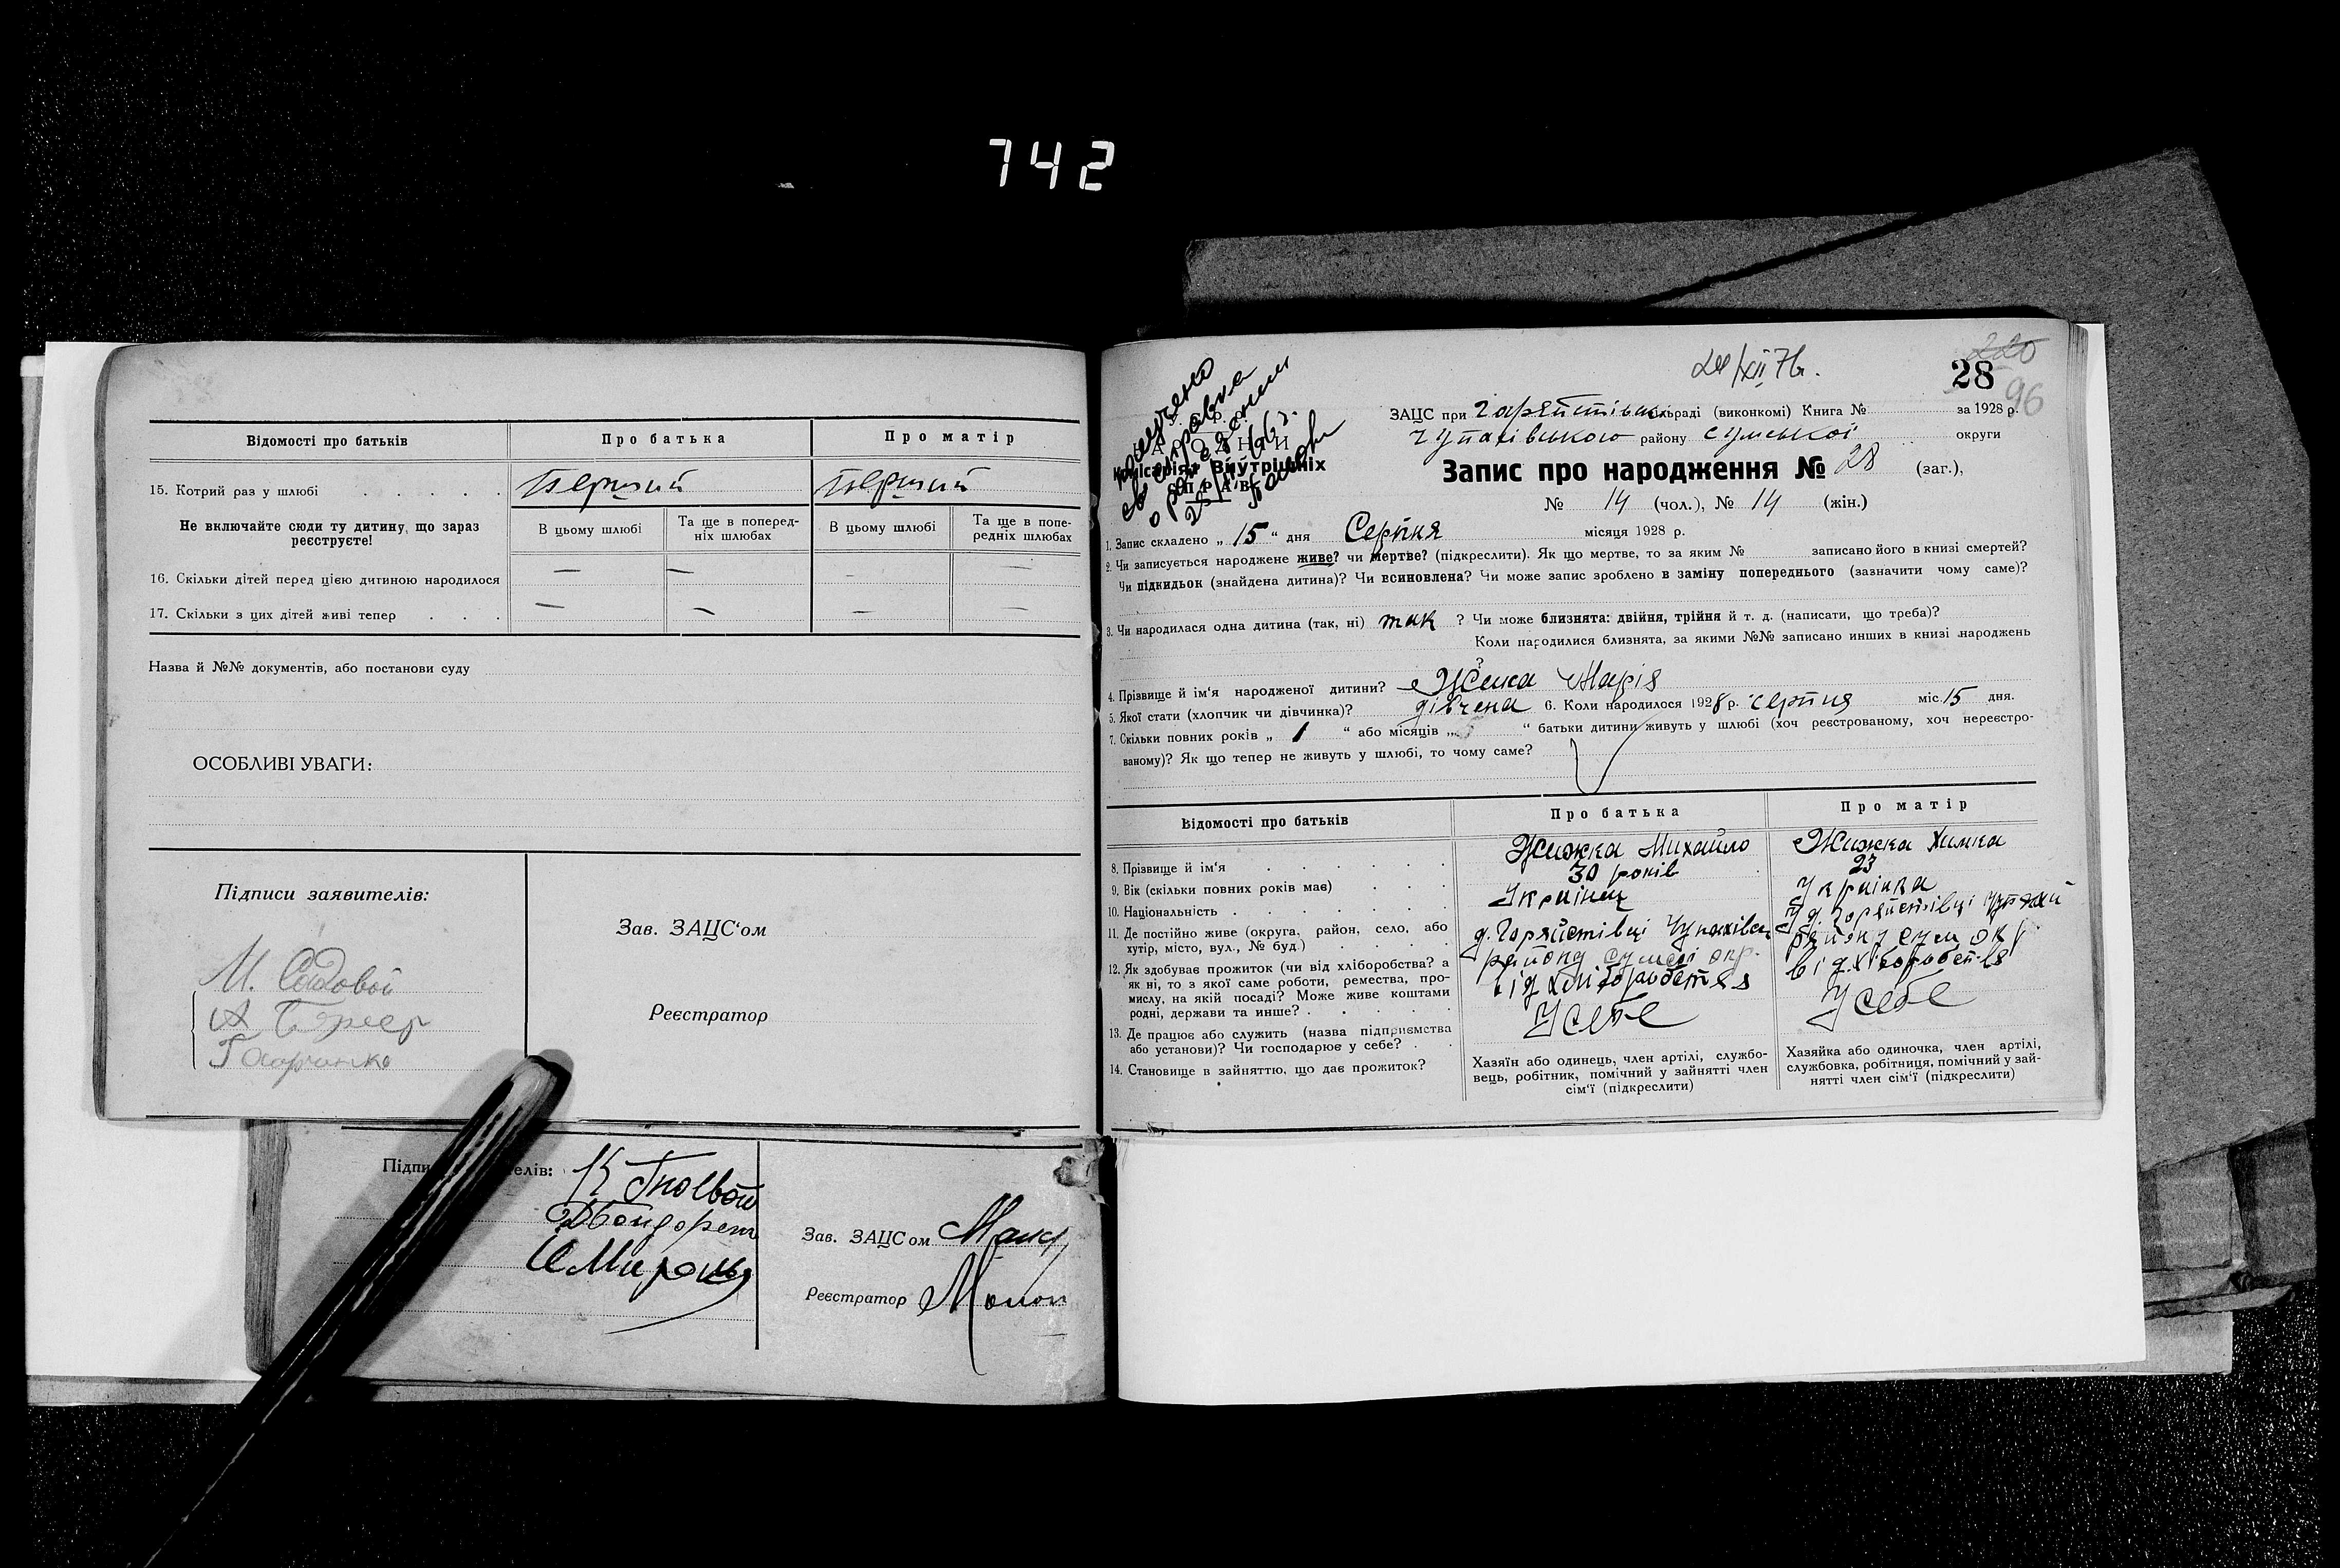 742
Відомості про батьків
Про батька
Про матір
15. Котрий раз у шлюбі . . . . .
Перший
Перший
Не включайте сюди ту дитину, що зараз
реєструєте!
В цьому шлюбі
Та ще в поперед-
ніх шлюбах
В цьому шлюбі
Та ще в попе-
редніх шлюбах
16. Скільки дітей перед цією дитиною народилося
— —
17. Скільки з цих дітей живі тепер . . .
— — — —
Назва й №№ документів, або постанови суду
ОСОБЛИВІ УВАГИ:
Підписи заявителів:
М. Садовой
Зав. ЗАЦС'ом
Реєстратор
елів:
Зав. ЗАЦС ом
Реєстратор
24/XII 71г.
220
28
96
ЗАЦС при сільраді (виконкомі) Книга № за 1928 р.
Чупахівського району Сумської округи
НАРОДНИЙ
Комісаріят Внутрішніх
СПРАВ
Запис про народження № 28 (заг.),
№ 14 (чол.), № 14 (жін.)
1. Запис складено „ 15 “ дня Серпня місяця 1928 р.
2. Чи записується народжене живе? чи мертве? (підкреслити). Як що мертве, то за яким № записано його в книзі смертей?
Чи підкидьок (знайдена дитина)? Чи всиновлена? Чи може запис зроблено в заміну попереднього (зазначити чому саме)?
3. Чи народилася одна дитина (так, ні) так ? Чи може близнята: двійня, трійня й т. д. (написати, що треба)?
Коли народилися близнята, за якими №№ записано инших в книзі народжень
?
4. Прізвище й ім'я народженої дитини? Марія
5. Якої стати (хлопчик чи дівчинка)? дівчена 6. Коли народилося 1928 р. серпня міс. 15 дня.
7. Скільки повних років „ 1 “ або місяців „ “ батьки дитини живуть у шлюбі (хоч реєстрованому, хоч нереєстро-
ваному)? Як що тепер не живуть у шлюбі, то чому саме?
Відомості про батьків
Про батька
Про матір
8. Прізвище й ім'я . . . . .
Жижка Михайло
Жижка Химка
9. Вік (скільки повних років має) . . .
30 років
23
10. Національність . . . . . .
Українець
Українка
11. Де постійно живе (округа, район, село, або
хутір, місто, вул., № буд.) . . . .
12. Як здобуває прожиток (чи від хліборобства? а
як ні, то з якої саме роботи, ремества, про-
мислу, на якій посаді? Може живе коштами
родні, держави та инше? . . . . .
від хліборобства
від хліборобства
13. Де працює або служить (назва підприємства
або установи)? Чи господарює у себе? . .
У себе
У себе
14. Становище в зайняттю, що дає прожиток?
Хазяїн або одинець, член артілі, службо-
вець, робітник, помічний у зайнятті член
сім'ї (підкреслити)
Хазяйка або одиночка, член артілі,
службовка, робітниця, помічний у зай-
нятті член сім'ї (підкреслити)